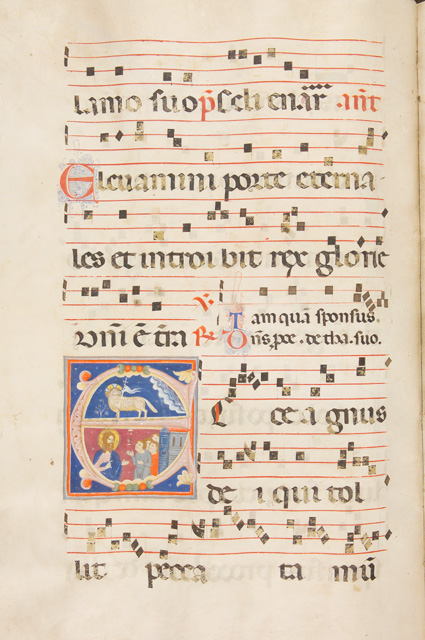 lamo suo p̄s Celi enarr̄ .ant̄
Elevamini porte eterna
les et introi bit rex glorie
Dn̄i ē tr̄a ℣ Tam quā sponsus.
℟ Dn̄s, p̄ce .de tha. suo.
Ecce agnus
de i qui tol
lit pecca ta mū